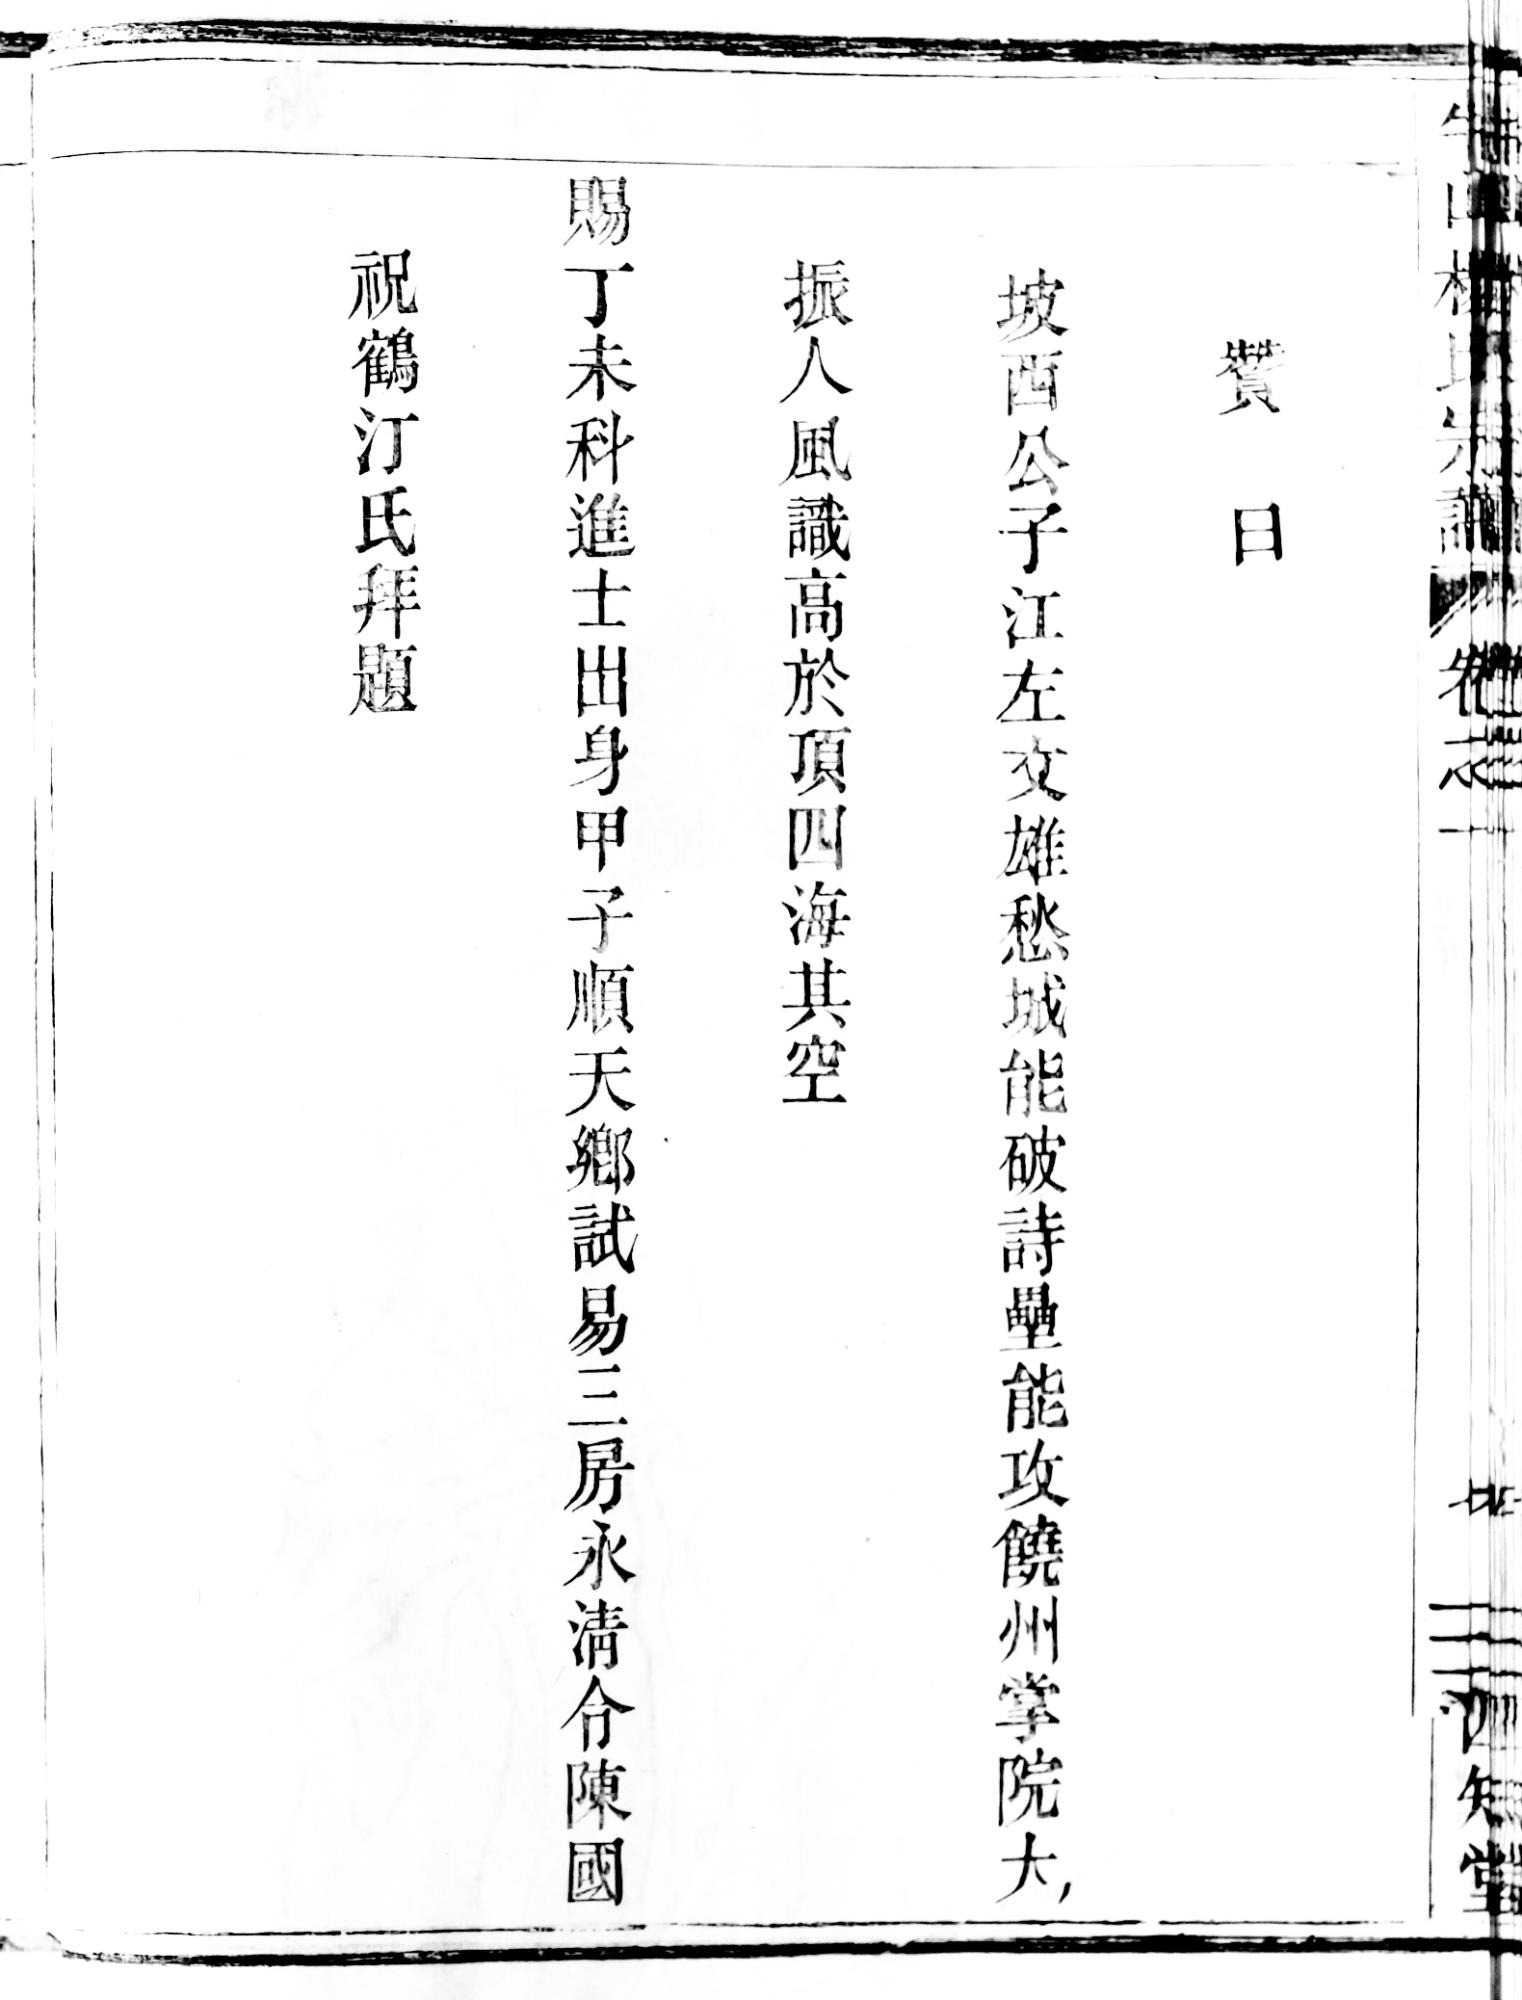 贊曰
坡西公子江左文雄愁城能破詩壘能攻饒州掌院大
振人風識高於頂四海其空
賜丁未科進士出身甲子順天鄉試易三房永淸令陳國
祝鶴汀氏拜題
卷之一
四知堂